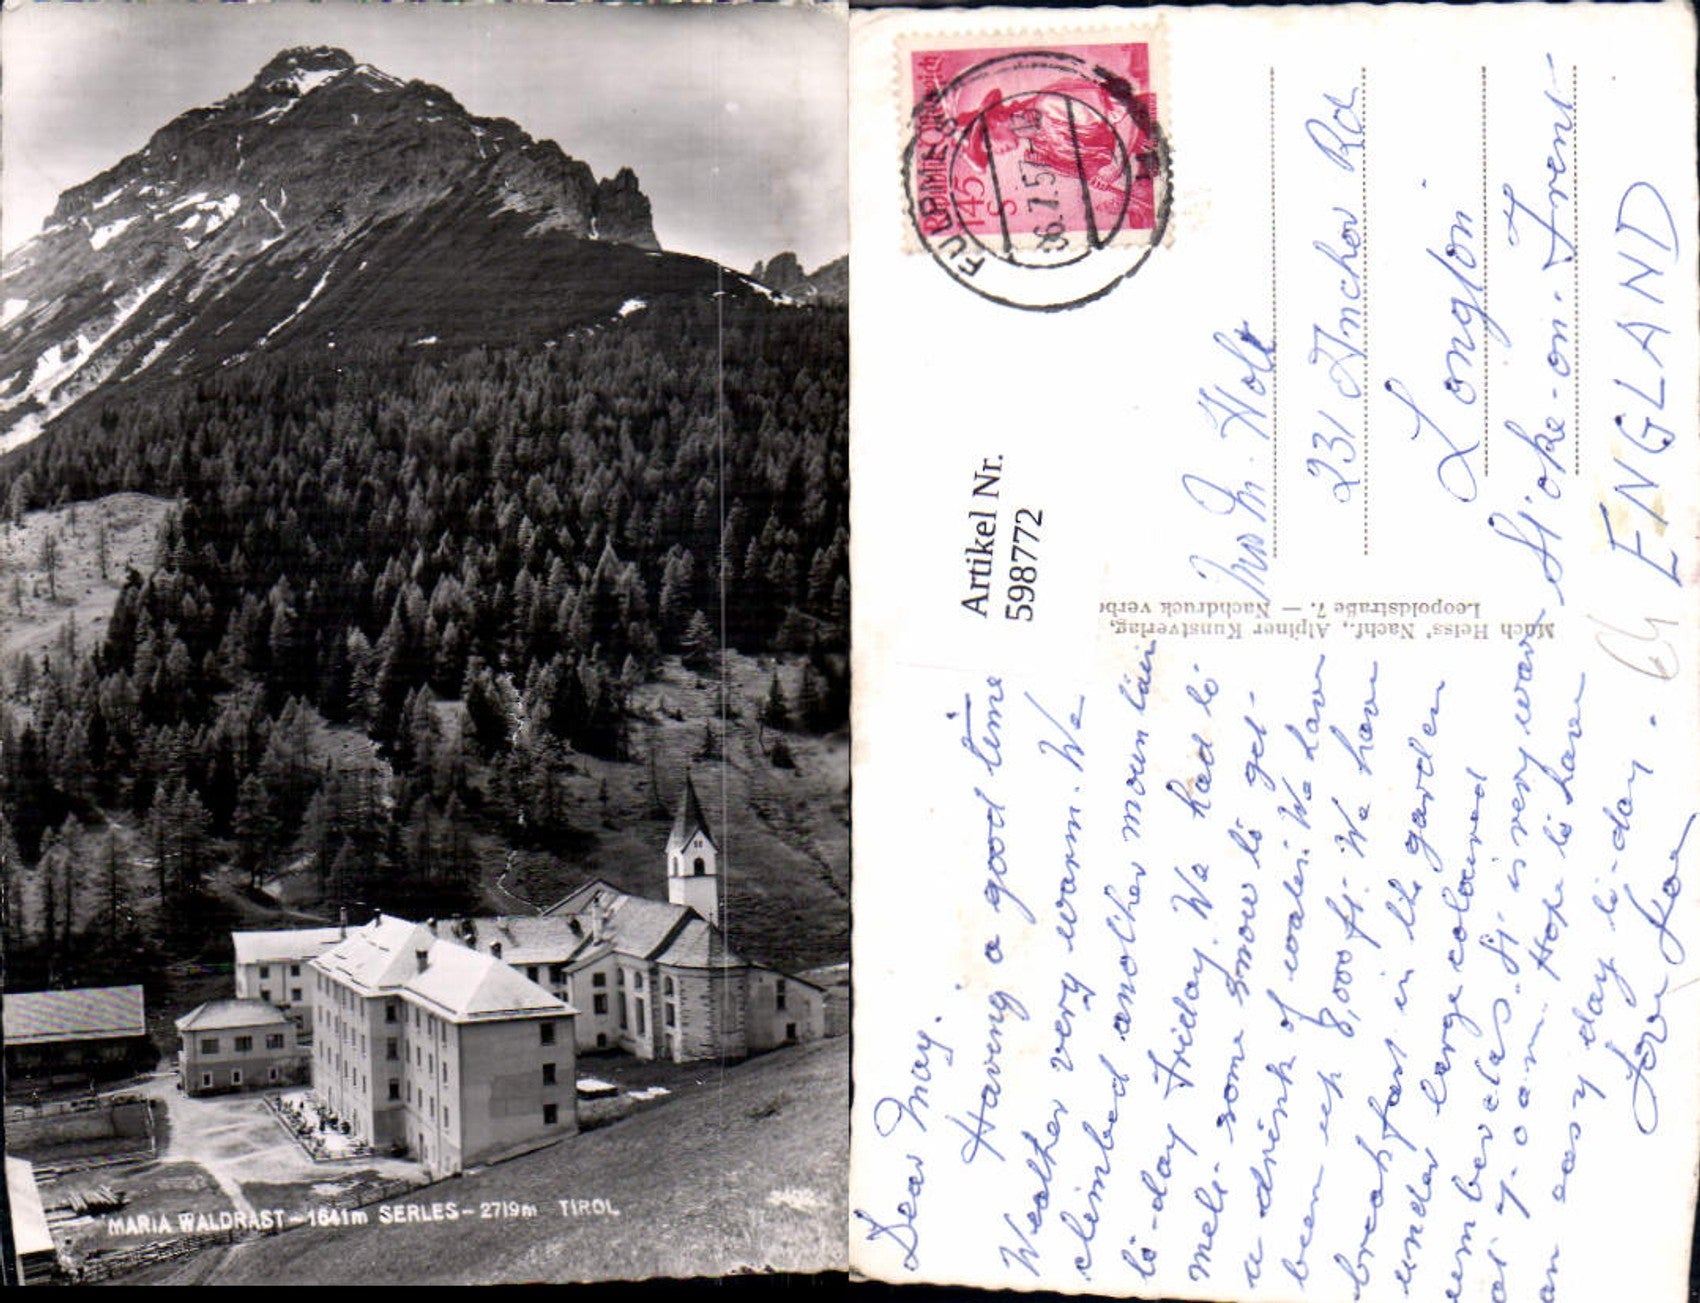 MARIA WALDRAST - 1641m SERLES - 2719m TIROL
REPUBLIK
145
S
FULPMES
6.7.57-12
Artikel Nr.
598772
Much Heiss' Nachf., Alpiner Kunstverlag,
Leopoldstraße 7. — Nachdruck verbo
Dear May.
Having a good time
Weather very warm. We
climbed another mountain
to-day Friday. We had to
melt some snow to get
a drink of water. We have
been up 8,000 ft. We have
breakfast in the garden
under large coloured
umbrellas. It is very warm
at 7-0 a m. Hope to have
an easy day to-day.
Love Joan
Mrs M. Holt
231 Anchor Rd
Longton
Stoke-on-Trent-
ENGLAND